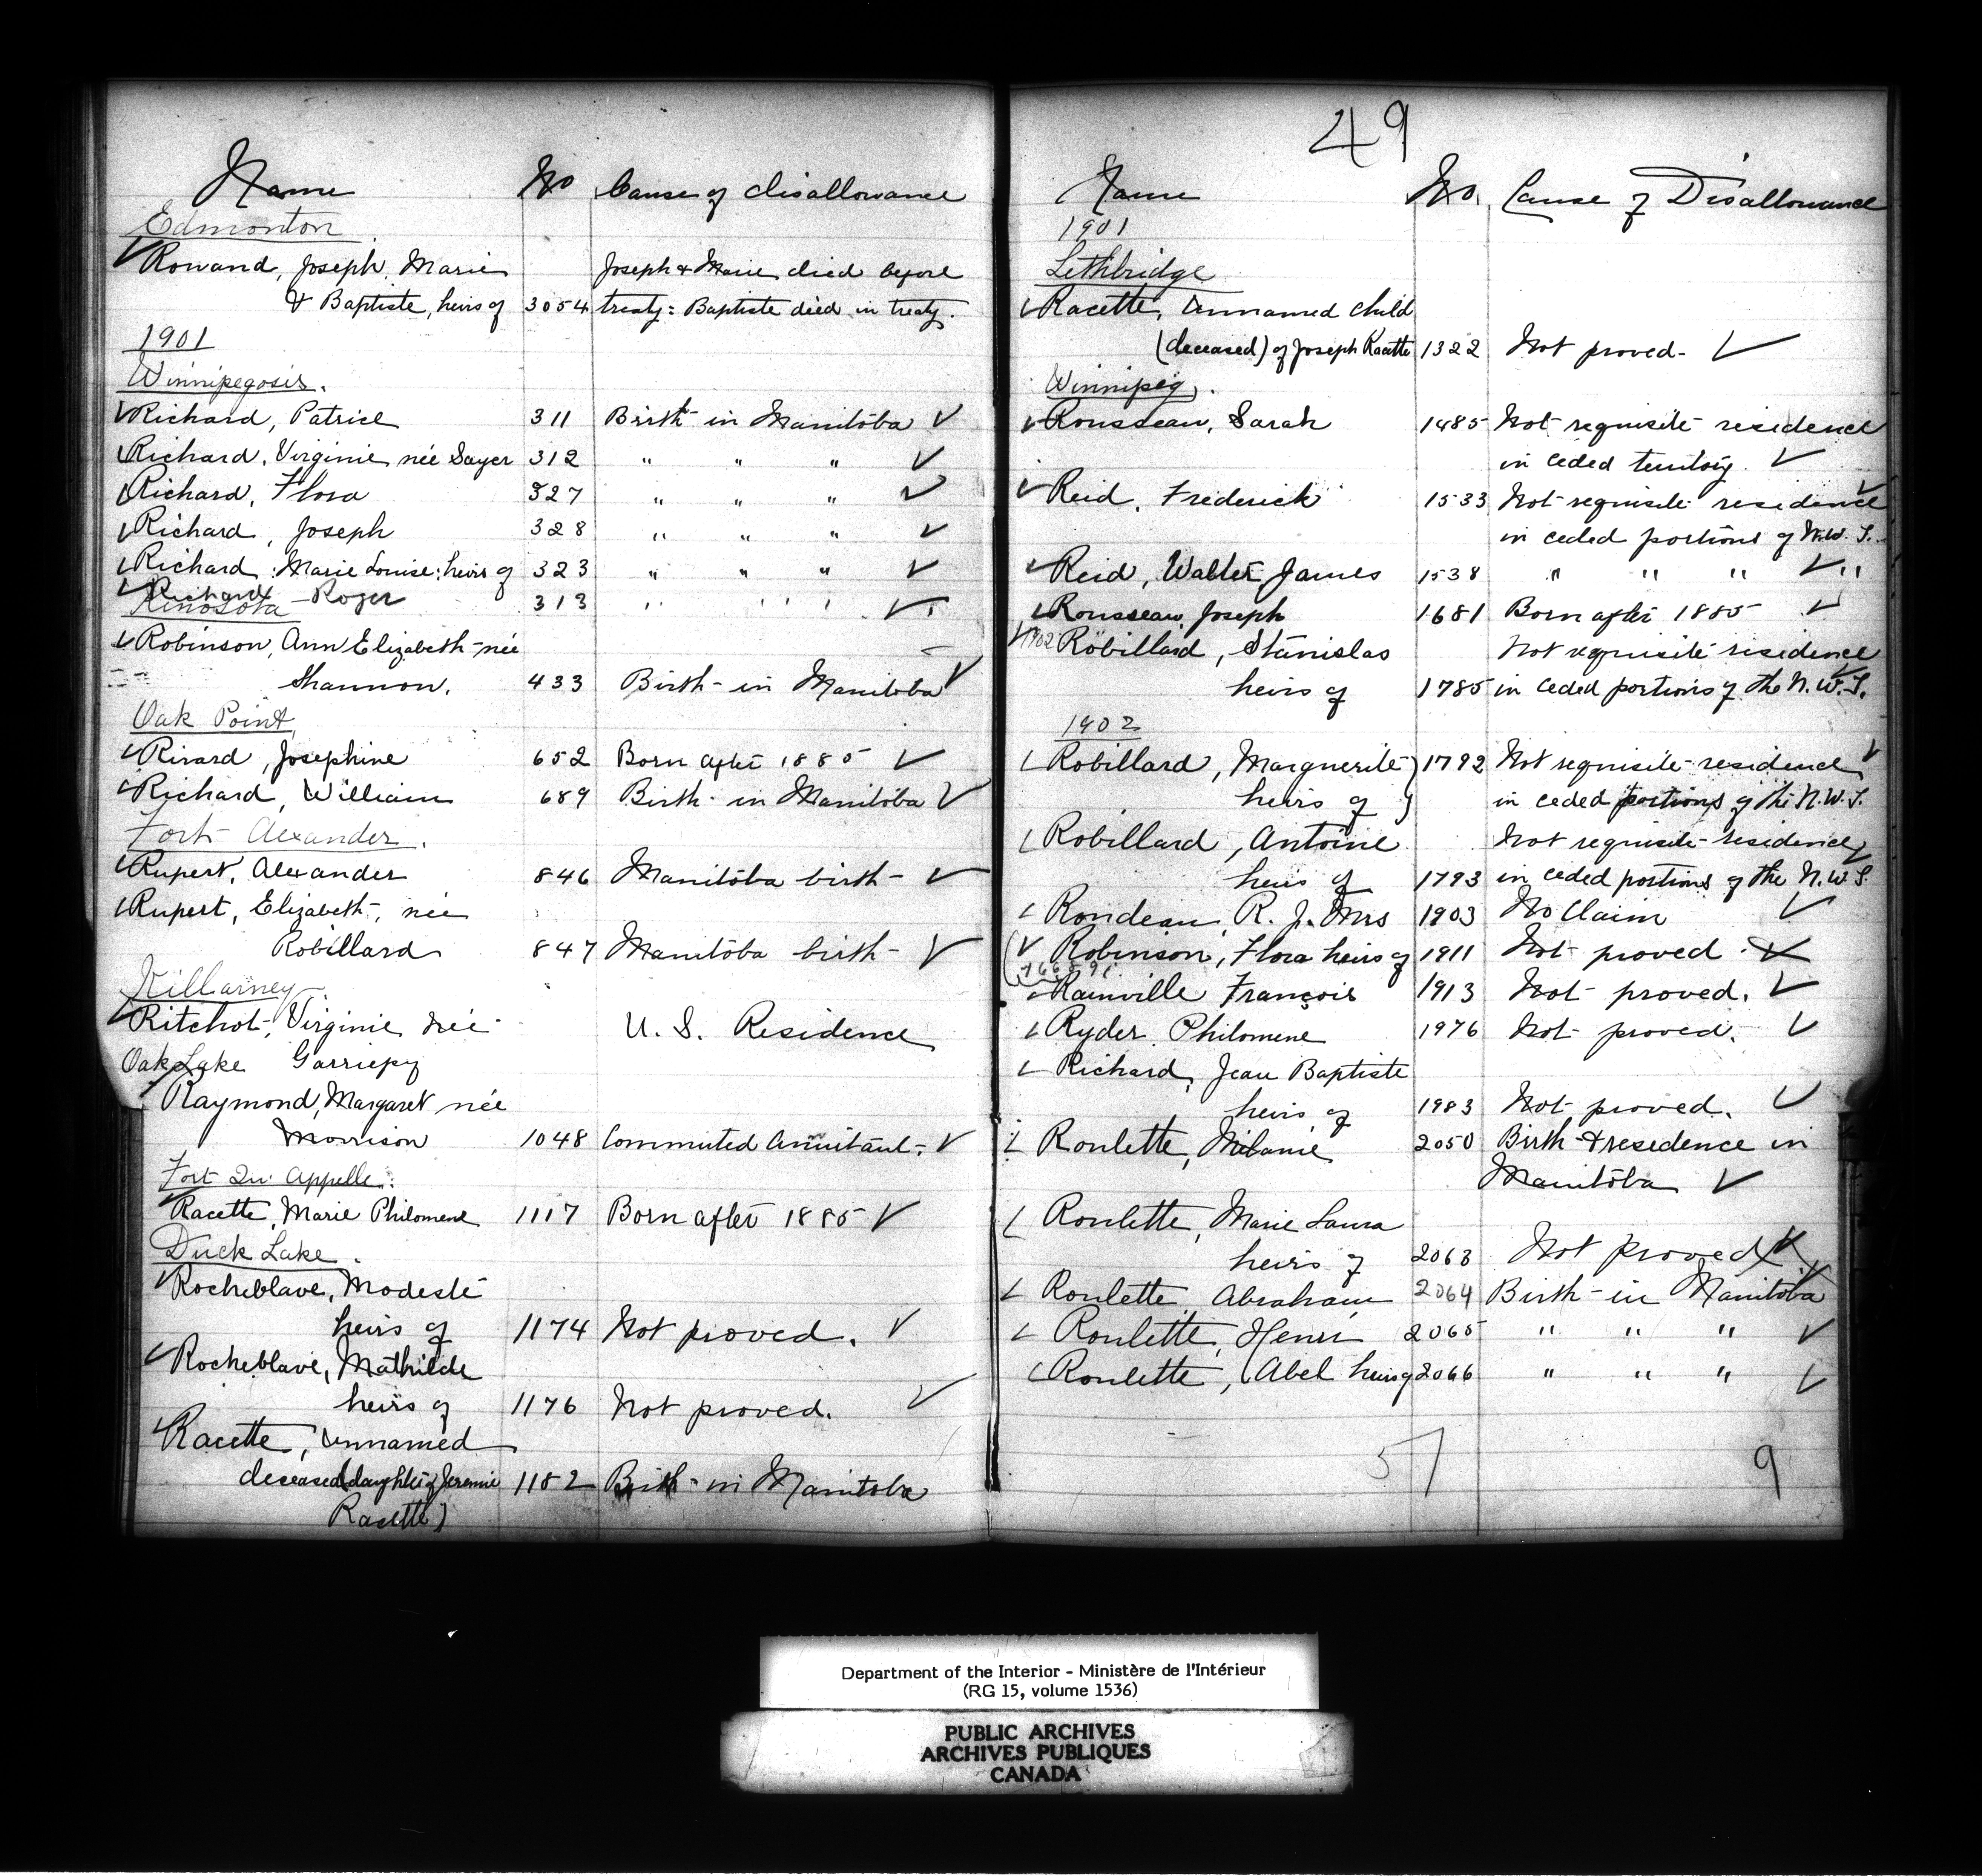 Name No Cause of disallowance
Edmonton
Rowand, Joseph, Marie Joseph & Marie died before
& Baptiste, heirs of 3054 treaty: Baptiste died in treaty.
1901
Winnipegosis.
Richard, Patrice 311 Birth in Manitoba ✓
Richard, Virginie née Sayer 312 " " " ✓
Richard, Flora 327 " " " ✓
Richard, Joseph 328 " " " ✓
Richard, Marie Louise: heirs of 323 " " " ✓
Richard Roger 313 " " " ✓
Kinosota
Robinson, Ann Elizabeth née
Shannon. 433 Birth in Manitoba ✓
Oak Point
Rivard, Josephine 652 Born after 1885 ✓
Richard, William 689 Birth in Manitoba ✓
Fort Alexander.
Rupert, Alexander 846 Manitoba birth ✓
Rupert, Elizabeth, née
Robillard 847 Manitoba birth ✓
Killarney
Ritchot, Virginie née U. S. Residence
Oak Lake Garriepy
Raymond, Margaret née
Morrison 1048 Commuted Annuitant. ✓
Fort Qu'Appelle.
Racette, Marie Philomene 1117 Born after 1885 ✓
Duck Lake.
Rocheblave, Modeste
heirs of 1174 Not proved. ✓
Rocheblave, Mathilde
heirs of 1176 Not proved. ✓
Racette, Unnamed
deceased (daughter of Jeremie 1182 Birth in Manitoba
Racette)
49
Name No. Cause of Disallowance
1901
Lethbridge
Racette, Unnamed child
(deceased) of Joseph Racette 1322 Not proved. ✓
Winnipeg.
Rousseau, Sarah 1485 Not requisite residence
in ceded territory. ✓
Reid, Frederick 1533 Not requisite residence ✓
in ceded portions of N.W.T.
Reid, Walter James 1538 " " " ✓ "
Rousseau, Joseph 1681 Born after 1885 ✓
1902 Robillard, Stanislas Not requisite residence
heirs of 1785 in ceded portions of the N.W.T.
1902
Robillard, Marguerite 1792 Not requisite residence ✓
heirs of in ceded portions of the N.W.T.
Robillard, Antoine Not requisite residence
heirs of 1793 in ceded portions of the N.W.T.
Rondeau, R. J. Mrs 1903 No Claim ✓
Robinson, Flora heirs of 1911 Not proved
Rainville François 1913 Not proved. ✓
Ryder Philomene 1976 Not proved. ✓
Richard, Jean Baptiste
heirs of 1983 Not proved. ✓
Roulette, Melanie 2050 Birth & residence in
Manitoba ✓
Roulette, Marie Laura
heirs of 2063 Not proved
Roulette Abraham 2064 Birth in Manitoba
Roulette, Henri 2065 " " " ✓
Roulette, Abel heirs of 2066 " " " ✓
57 9
Department of the Interior - Ministère de l'Intérieur
(RG 15, volume 1536)
PUBLIC ARCHIVES
ARCHIVES PUBLIQUES
CANADA